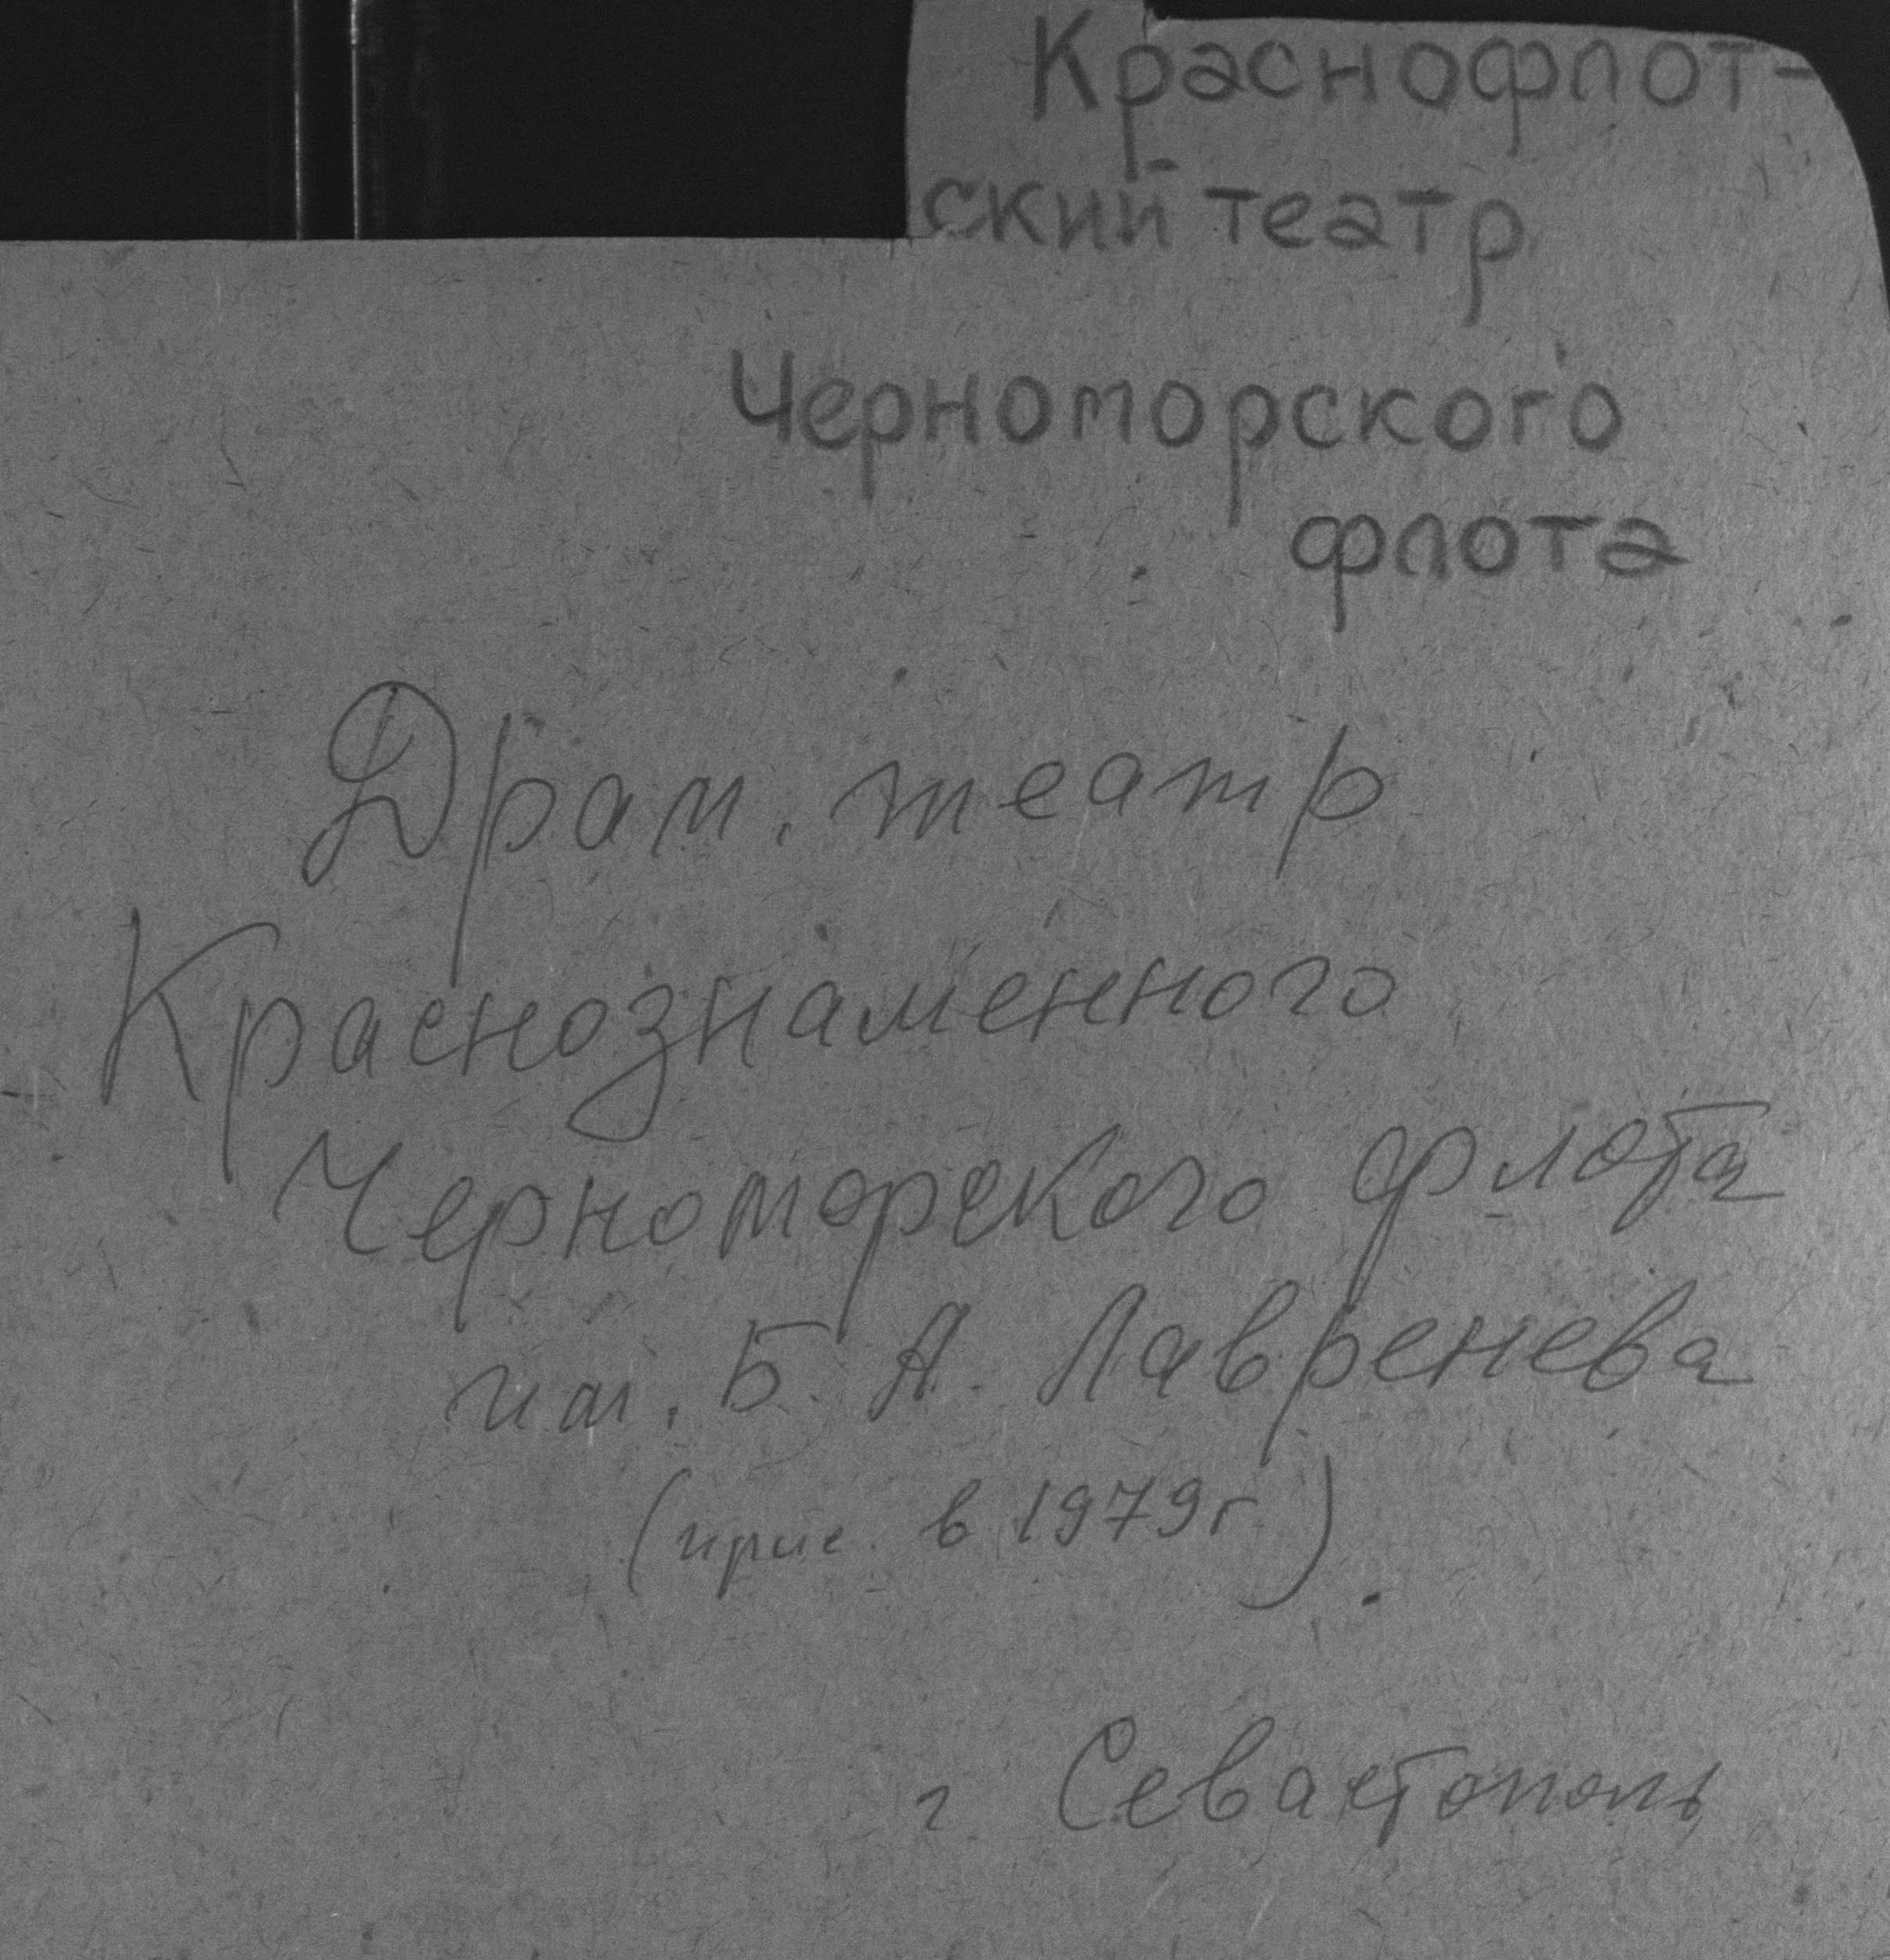 Краснофлот-
ский театр
Черноморского
флота
Драм. театр
Краснознаменного
Черноморского флота
им. Б. А. Лавренева
(прис. в 1979г.)
г. Севастополь